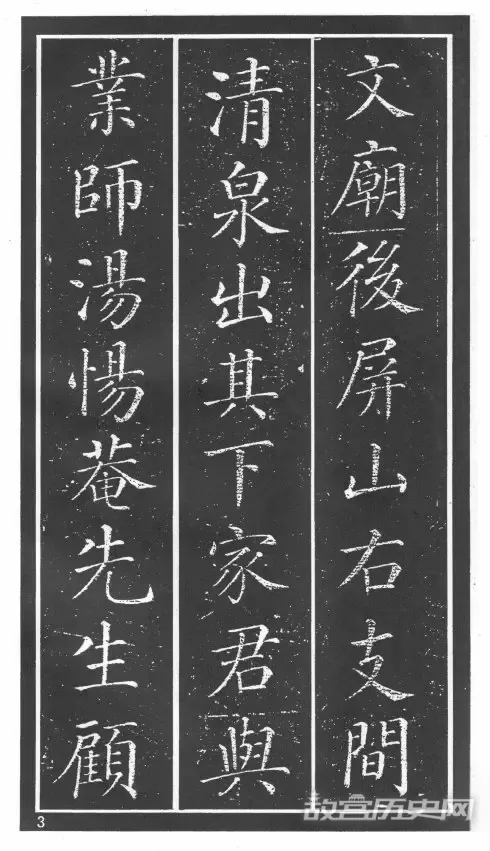 文廟後屏山右支間
清泉出其下家君與
業師湯惕菴先生顧
3
故宫历史网